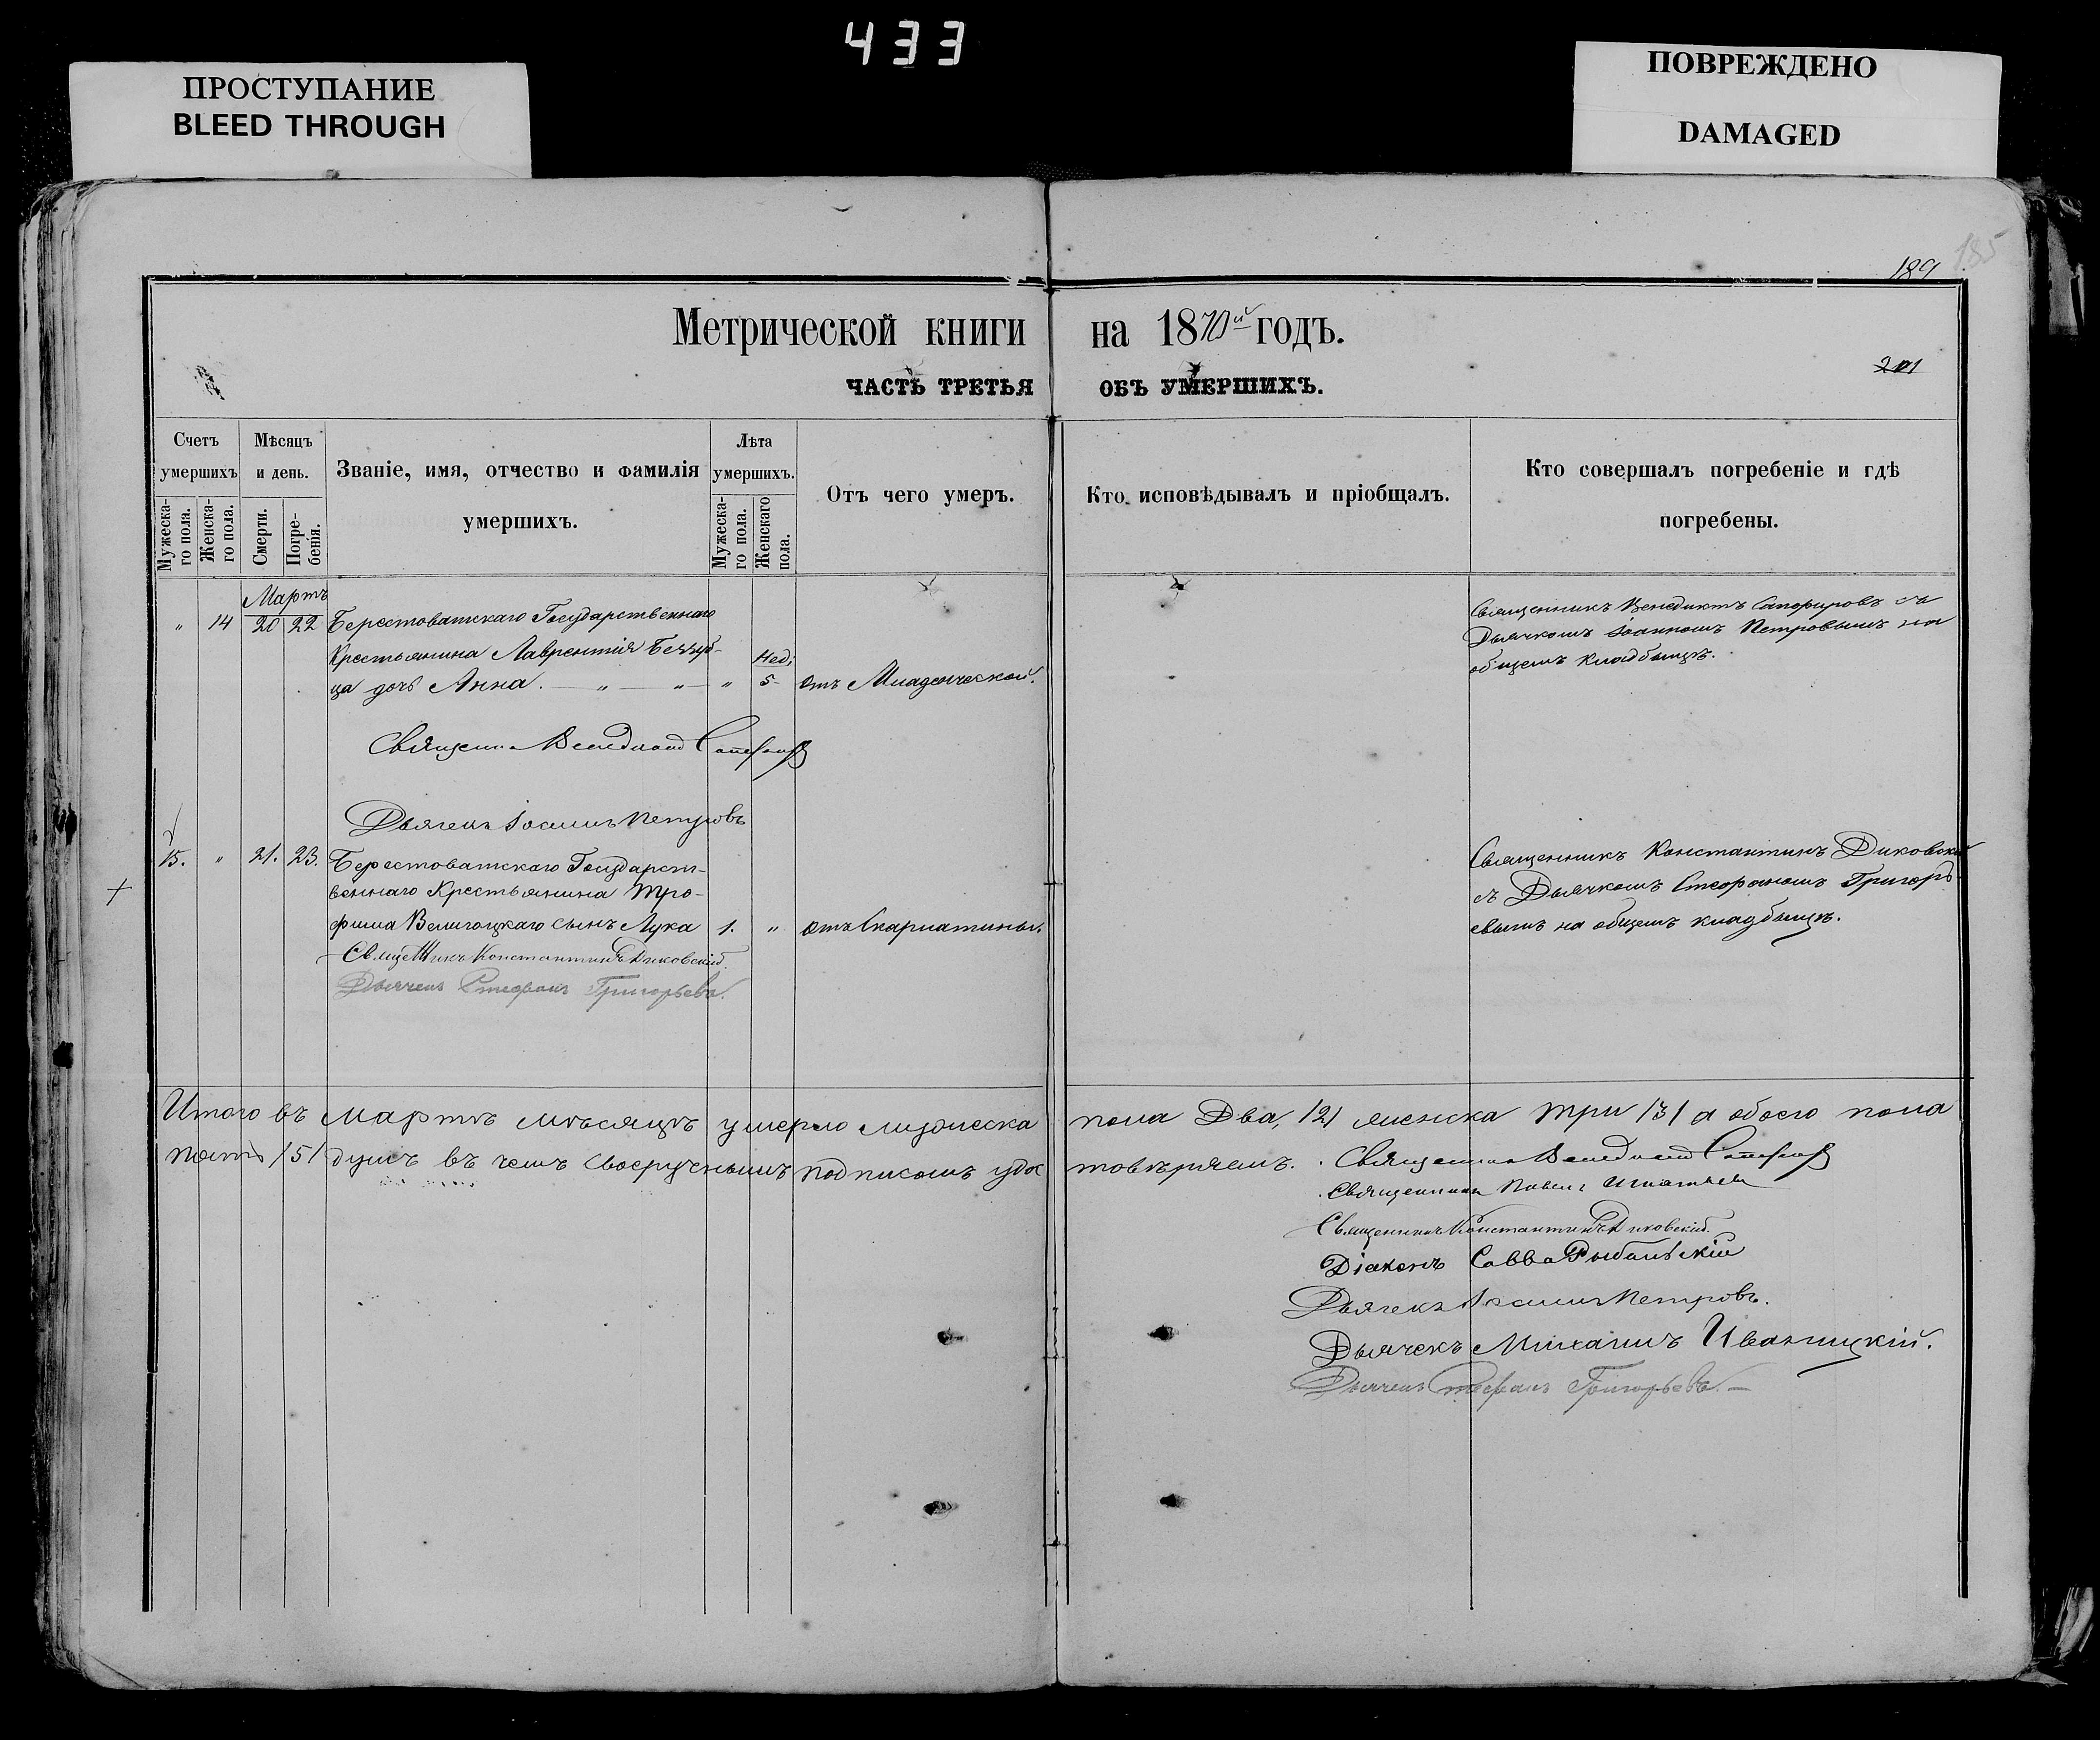 433
ПРОСТУПАНИЕ
BLEED THROUGH
ПОВРЕЖДЕНО
DAMAGED
185
189
Метрической книги на 1870й годъ.
201
ЧАСТЬ ТРЕТЬЯ ОБЪ УМЕРШИХЪ.
Счетъ умершихъ
Мужеска-го пола.
Женска-го пола.
Мѣсяцъ и день.
Смерти.
Погре-бенія.
Званіе, имя, отчество и фамилія умершихъ.
Лѣта умершихъ.
Мужеска-го пола.
Женскаго пола.
Отъ чего умеръ.
Кто исповѣдывалъ и пріобщалъ.
Кто совершалъ погребеніе и гдѣ погребены.
Мартъ
" 14 20 22 Берестоватскаго Государственнаго
Крестьянина Лаврентія Беззуб-
Нед:
ца дочь Анна. — " — " — " 5 отъ Младенческой.
Священникъ Венедиктъ Сапфировъ съ
Дьячкомъ Іоанномъ Петровымъ на
общемъ кладбищѣ.
Священникъ Венедиктъ Сапфировъ
Дьячекъ Іоаннъ Петровъ
15. " 21. 23. Берестоватскаго Государст-
веннаго Крестьянина Тро-
фима Велигоцкаго сынъ Лука 1. " отъ Скарлатины.
Священникъ Константинъ Диковскій
съ Дьячкомъ Стефаномъ Григорь-
евымъ на общемъ кладбищѣ.
Священникъ Константинъ Диковскій.
Дьячекъ Стефанъ Григорьевъ.
Итого въ Мартѣ мѣсяцѣ умерло мужеска пола Два, /2/ женска три /3/ а обоего пола
пять /5/ душъ въ чемъ своеручнымъ подписомъ удостовѣряемъ. Священникъ Венедиктъ Сапфировъ
Священникъ Павелъ Игнатьев
Священникъ Константинъ Диковскій.
Діаконъ Савва Рыбальскій
Дьячекъ Іоаннъ Петровъ.
Дьячекъ Михаилъ Иваницкій.
Дьячекъ Стефанъ Григорьевъ. —